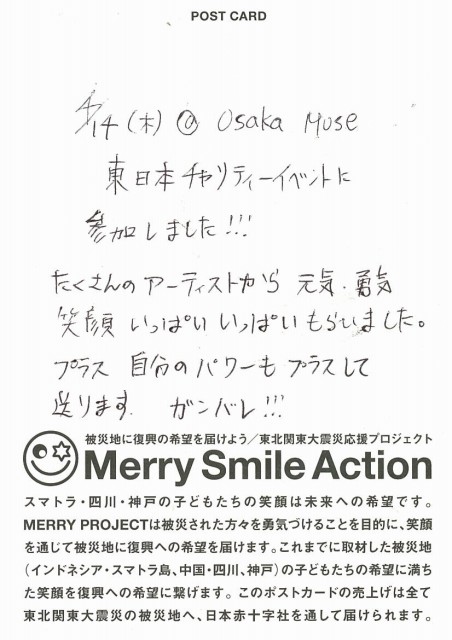 POST CARD
4/14(木) @ Osaka Muse
東日本チャリティーイベントに
参加しました!!!
たくさんのアーティストから 元気・勇気
笑顔 いっぱい いっぱい もらいました。
プラス 自分の パワーも プラスして
送ります ガンバレ!!!
被災地に復興の希望を届けよう/東北関東大震災応援プロジェクト
Merry Smile Action
スマトラ・四川・神戸の子どもたちの笑顔は未来への希望です。
MERRY PROJECTは被災された方々を勇気づけることを目的に、笑顔
を通じて被災地に復興への希望を届けます。これまでに取材した被災地
(インドネシア・スマトラ島、中国・四川、神戸)の子どもたちの希望に満ち
た笑顔を復興への希望に繋げます。このポストカードの売上げは全て
東北関東大震災の被災地へ、日本赤十字社を通して届けられます。